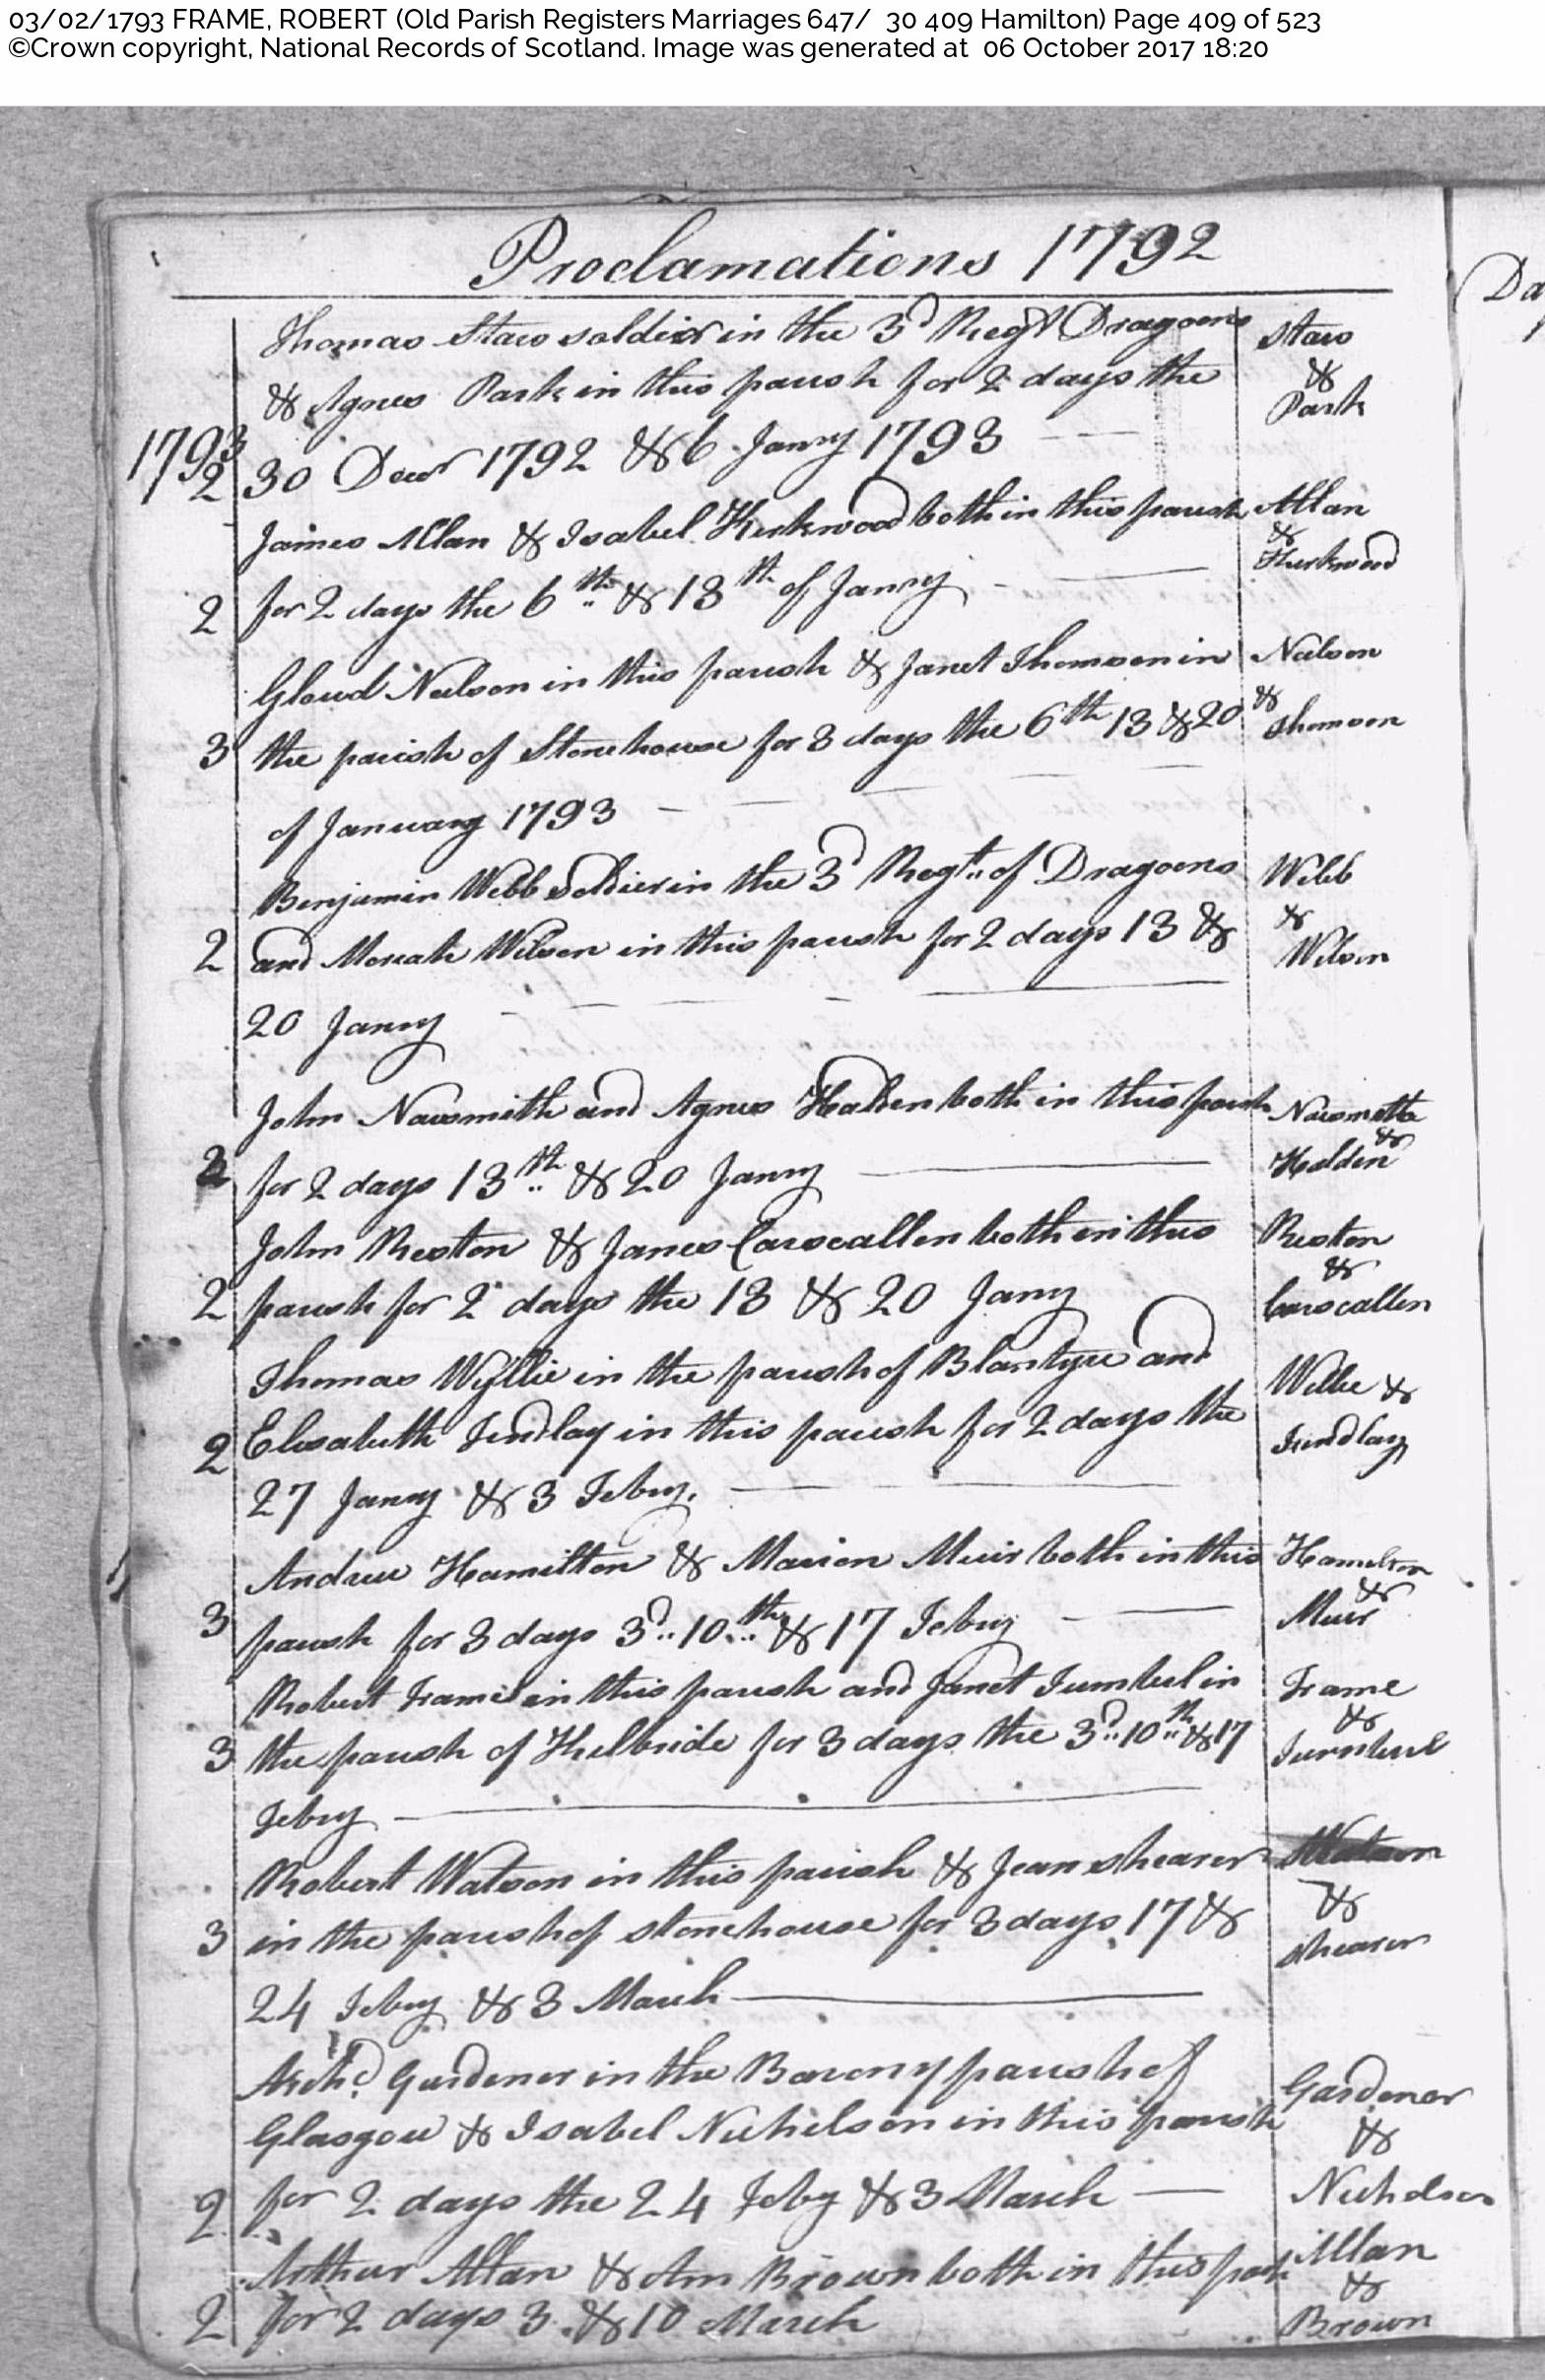 03/02/1793 FRAME, ROBERT (Old Parish Registers Marriages 647/ 30 409 Hamilton) Page 409 of 523
©Crown copyright, National Records of Scotland. Image was generated at 06 October 2017 18:20
Proclamations 1792
Thomas Staw soldier in the 3d Regt Dragoons Staw
& Agnes Park in this parish for 2 days the & Park
1793
2 30 Decr 1792 & 6 Janry 1793
James Allan & Isabel Kirkwood both in this parish Allan & Kirkwood
2 for 2 days the 6th & 13th of Janry
Gloud Neilson in this parish & Janet Thomson in Neilson
3 the parish of Stonehouse for 3 days the 6th 13 & 20 & Thomson
of January 1793
Benjamin Webb Soldier in the 3d Regt of Dragoons Webb
2 and Wilson in this parish for 2 days 13 & & Wilson
20 Janry
John Naismith and Agnes Halden both in this parish Naismith
2 for 2 days 13th & 20 Janry & Halden
John Reston & Janes Carscallen both in this Reston
2 parish for 2 days the 13 & 20 Jany & Carscallen
Thomas Wyllie in the parish of Blantyre and Willie &
2 Elisabeth Findlay in this parish for 2 days the Findlay
27 Janry & 3 Febry.
Andrew Hamilton & Marion Muir both in this Hamilton
3 parish for 3 days 3d 10th & 17 Febry & Muir
Robert Frame in this parish and Janet Turnbul in Frame
3 the parish of Kilbride for 3 days the 3d 10th & 17 & Turnbul
Febry
Robert Watson in this parish & Jean shearer Watson
3 in the parish of stonehouse for 3 days 17 & & shearer
24 Febry & 3 March
Archd Gardener in the Barony parish of Gardener
Glasgow & Isabel Nicholson in this parish &
2 for 2 days the 24 Feby & 3 March Nicholson
Arthur Allan & Ann Brown both in this parish Allan
2 for 2 days 3 & 10 March & Brown
Da